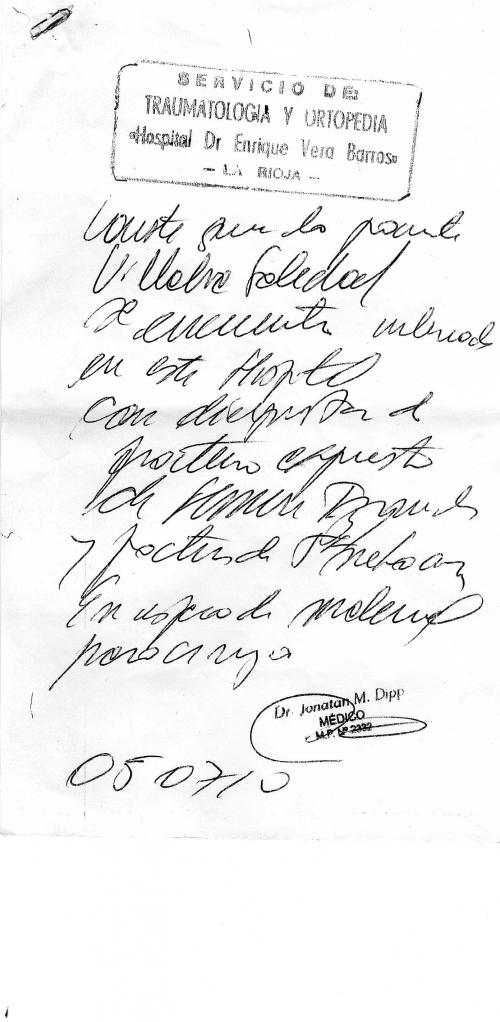 SERVICIO DE:
TRAUMATOLOGIA Y ORTOPEDIA
«Hospital Dr Enrique Vera Barros»
- LA RIOJA -
Conste que la paciente
Villalva Soledad
se encuentra internada
en este Hospital
con diagnostico de
fractura expuesta
de Femur Izquierdo
y fractura de
En espera de material
para cirugia
Dr. Jonatan M. Dipp
MÉDICO
M.P. Nº 2332
050710